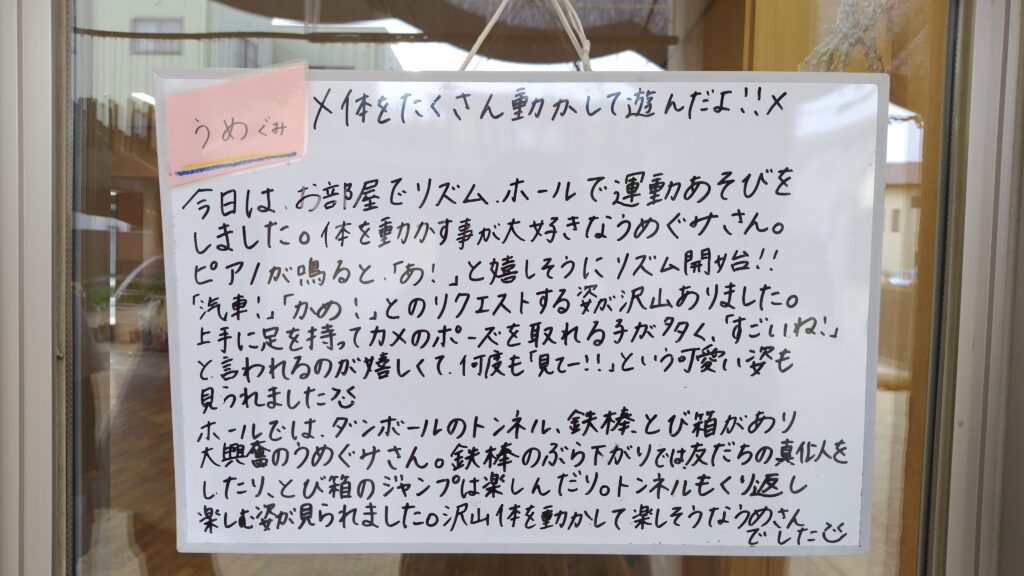 うめぐみ
×体をたくさん動かして遊んだよ!!×
今日は、お部屋でリズム、ホールで運動あそびを
しました。体を動かす事が大好きなうめぐみさん。
ピアノが鳴ると、「あ!」と嬉しそうにリズム開始!!
「汽車!」「かめ!」とのリクエストする姿が沢山ありました。
上手に足を持ってカメのポーズを取れる子が多く、「すごいね!」
と言われるのが嬉しくて、何度も「見てー!!」という可愛い姿も
見られました
ホールでは、ダンボールのトンネル、鉄棒、とび箱があり
大興奮のうめぐみさん。鉄棒のぶら下がりでは友だちの真似を
したり、とび箱のジャンプは楽しんだり。トンネルもくり返し
楽しむ姿が見られました。沢山体を動かして楽しそうなうめさん
でした